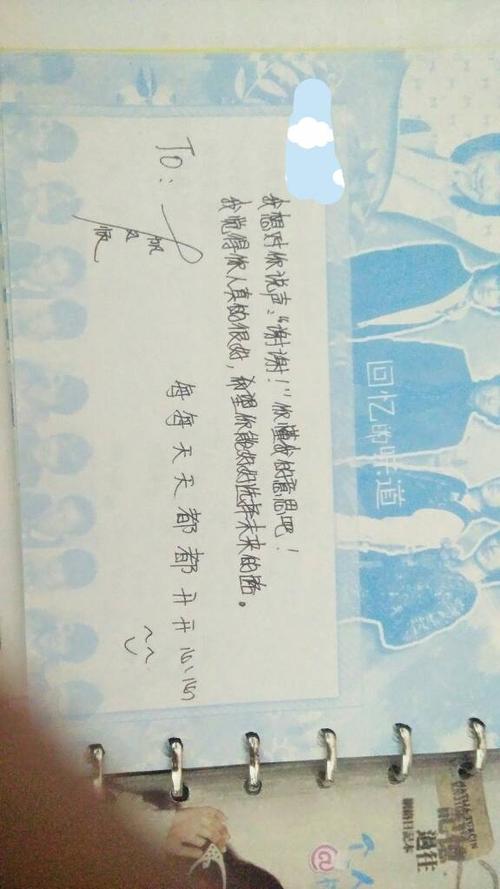 回忆的味道
我想对你说声：“谢谢！”你懂我的意思吧！
我觉得你人真的很好，希望你能好好选择未来的路。
To:
每每天天都都开开心心
@